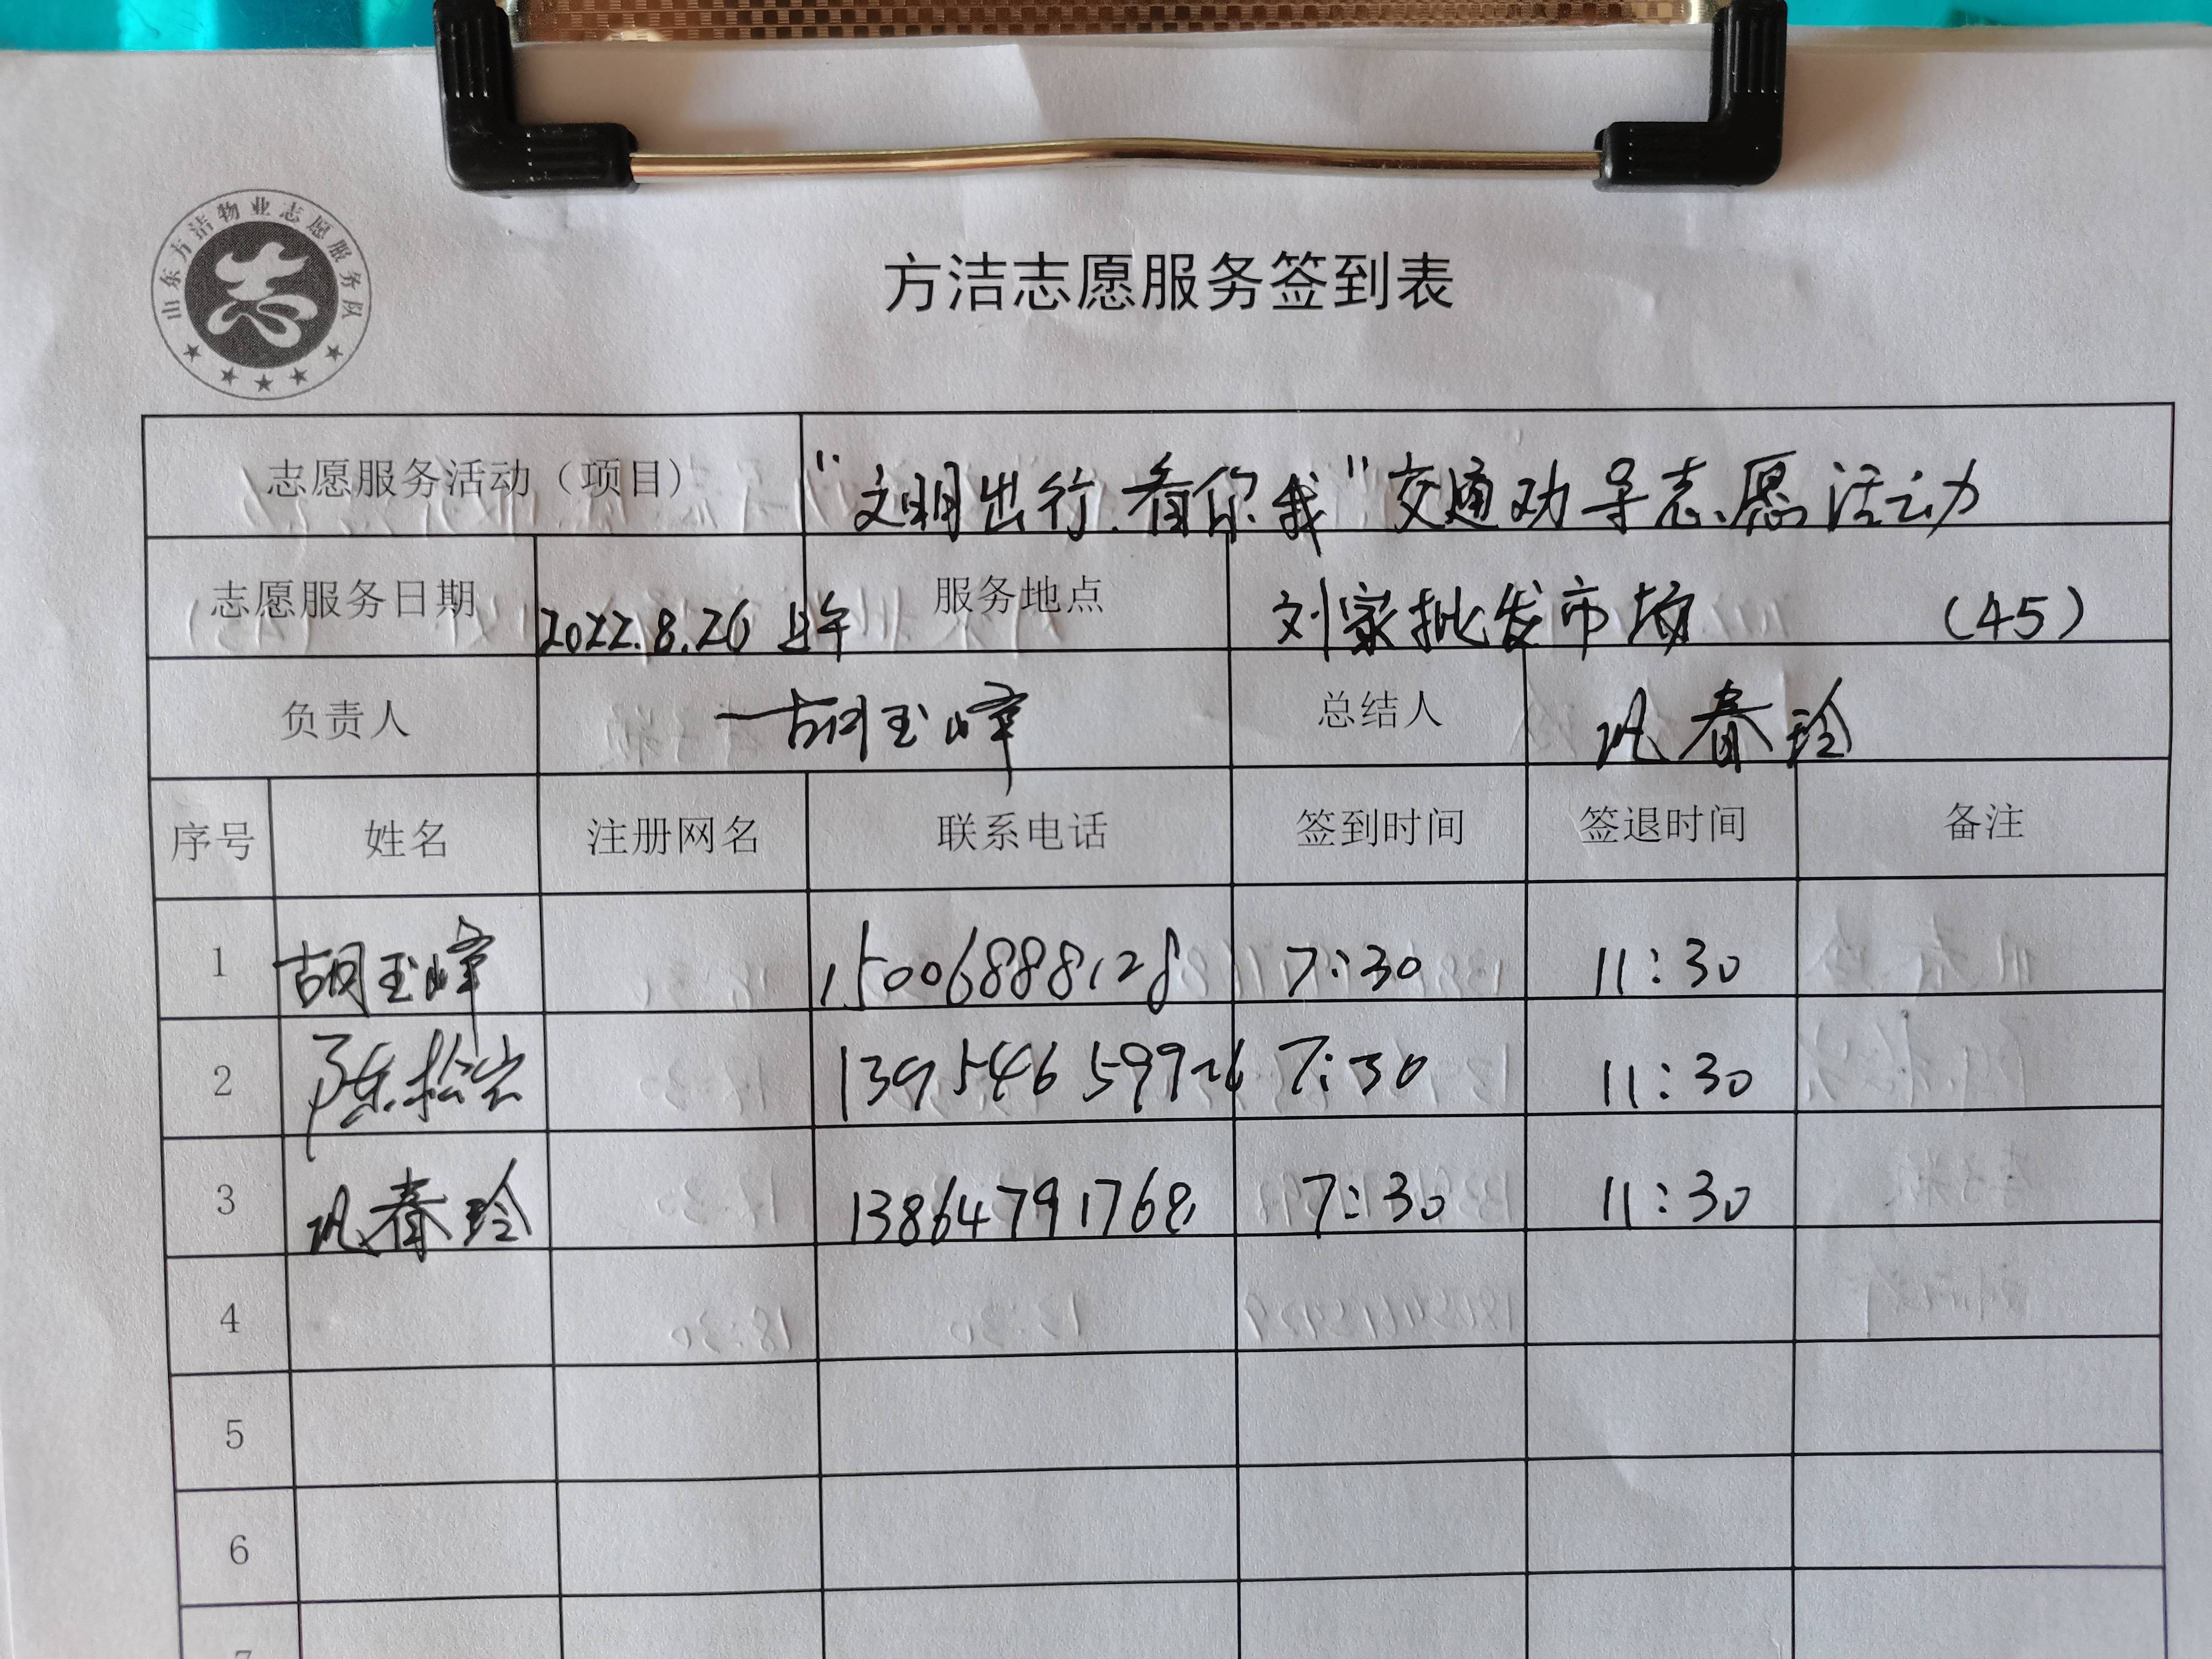 山东方洁物业志愿服务队
志
方洁志愿服务签到表
志愿服务活动（项目） “文明出行.看你我”交通劝导志愿活动
志愿服务日期 2022.8.26 上午 服务地点 刘家批发市场 (45)
负责人 胡玉峰 总结人 巩春玲
序号 姓名 注册网名 联系电话 签到时间 签退时间 备注
1 胡玉峰 15006888128 7:30 11:30
2 陈松宏 13954659926 7:30 11:30
3 巩春玲 13864791768 7:30 11:30
4
5
6
7